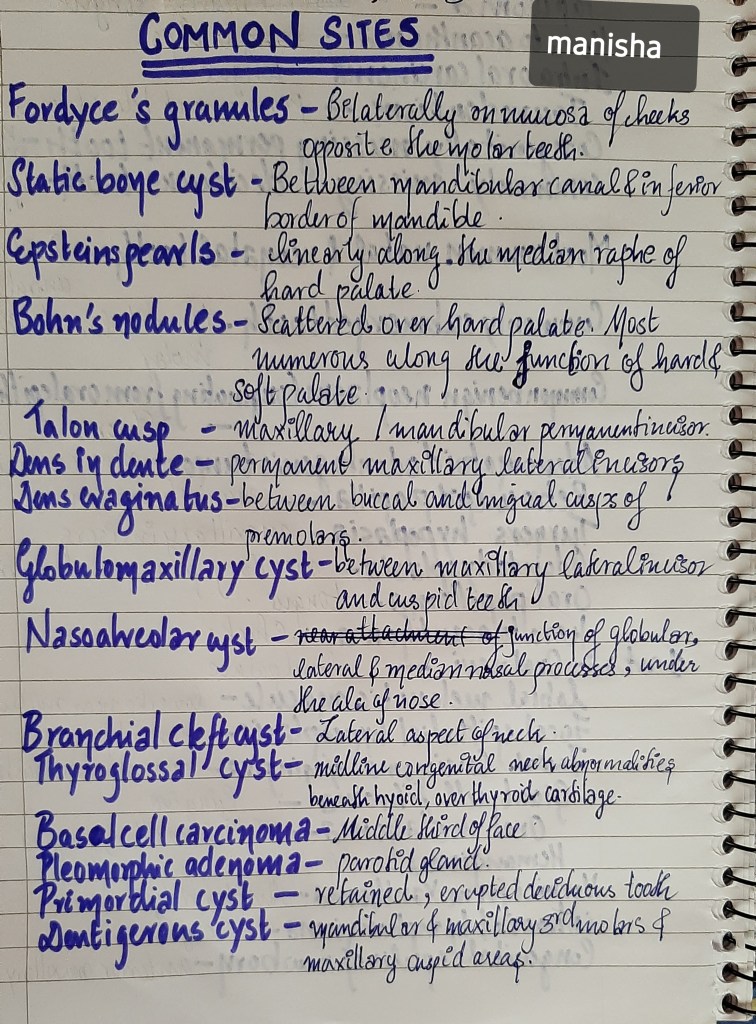 COMMON SITES
manisha
Fordyce's granules - Belaterally on mucosa of cheeks
opposite the molar teeth.
Static bone cyst - Between mandibular canal & inferior
border of mandible.
Epsteins pearls - linearly along the median raphe of
hard palate.
Bohn's nodules - Scattered over hard palate. Most
numerous along the junction of hard &
soft palate.
Talon cusp - maxillary / mandibular permanent incisor.
Dens in dente - permanent maxillary lateral incisors
Dens evaginatus - between buccal and lingual cusps of
premolars.
Globulomaxillary cyst - between maxillary lateral incisor
and cuspid teeth
Nasoalveolar cyst - near attachment of junction of globular,
lateral & median nasal processes, under
the ala of nose.
Branchial cleft cyst - Lateral aspect of neck.
Thyroglossal cyst - midline congenital neck abnormalities
beneath hyoid, over thyroid cartilage.
Basal cell carcinoma - Middle third of face
Pleomorphic adenoma - parotid gland.
Primordial cyst - retained, erupted deciduous tooth
Dentigerous cyst - mandibular & maxillary 3rd molars &
maxillary cuspid areas.